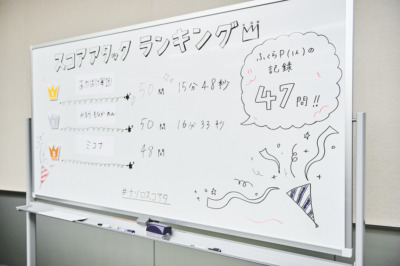 スコアアタック ランキング
50問 15分48秒
50問 16分33秒
ミコナ
48問
#ナゾロスコアタ
ふくらP(仏)の
記録
47問!!